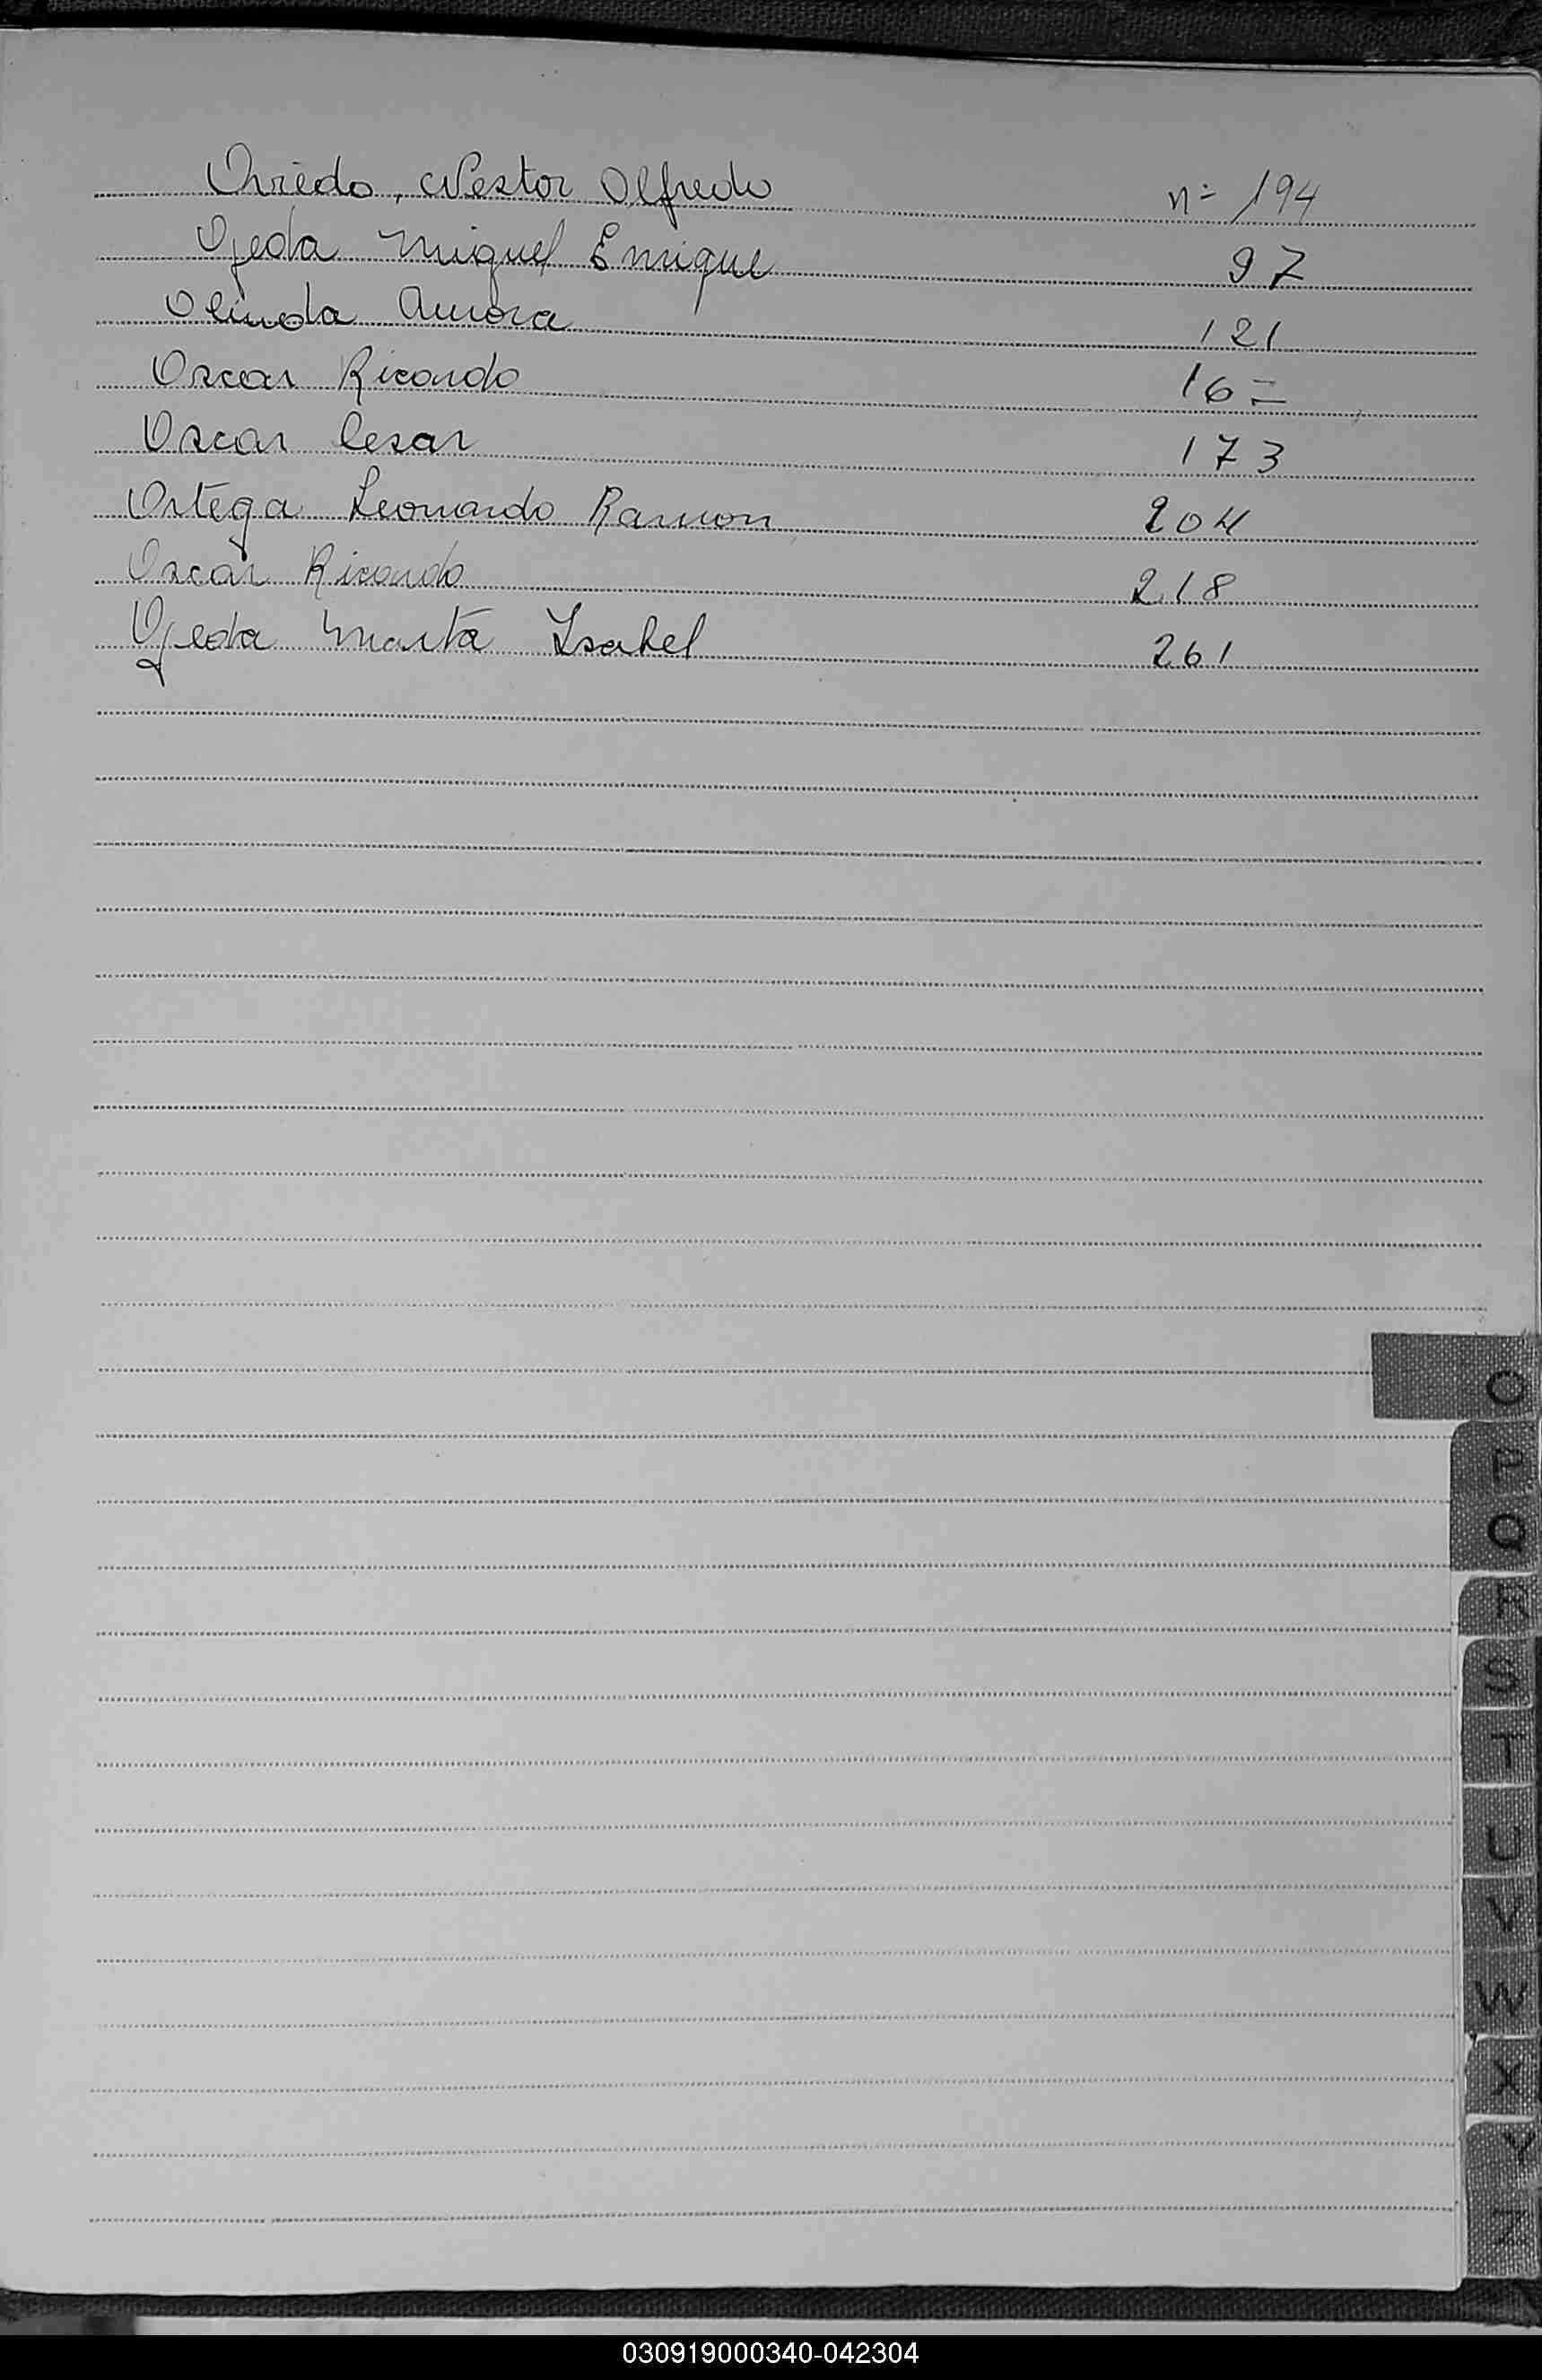 Oviedo, Nestor Alfredo n= 194
Ojeda Miguel Enrique 97
Olinda Aurora 121
Oscar Ricardo 16=
Oscar Cesar 173
Ortega Leonardo Ramon 204
Oscar Ricardo 218
Ojeda Marta Isabel 261
O
P
Q
R
S
T
U
V
W
X
Y
Z
030919000340-042304